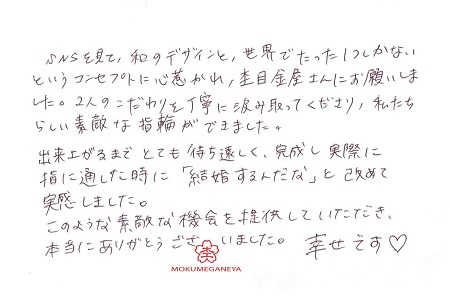 SNSを見て、和のデザインと、世界でたった1つしかない
というコンセプトに心惹かれ、杢目金屋さんにお願いしま
した。2人のこだわりを丁寧に汲み取ってくださり、私たち
らしい素敵な指輪ができました。
出来上がるまでとても待ち遠しく、完成し実際に
指に通した時に「結婚するんだな」と改めて
実感しました。
このような素敵な機会を提供していただき、
本当にありがとうございました。 幸せです♡
杢
MOKUMEGANEYA